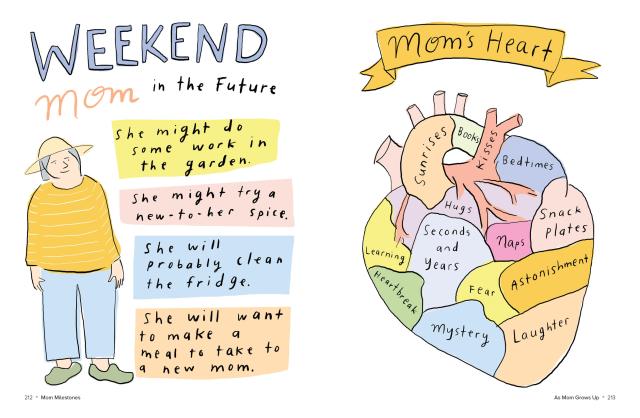 WEEKEND
mom in the Future
She might do
some work in
the garden.
She might try a
new-to-her spice.
She will
probably clean
the fridge.
She will want
to make a
meal to take to
a new mom.
212 • Mom Milestones
Mom's Heart
Sunrises
Books
Kisses
Bedtimes
Hugs
Snack
plates
Seconds
and
Years
Naps
Learning
Astonishment
Heartbreak
Fear
Mystery
Laughter
As Mom Grows Up • 213